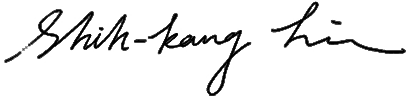 Shih-kang Lin